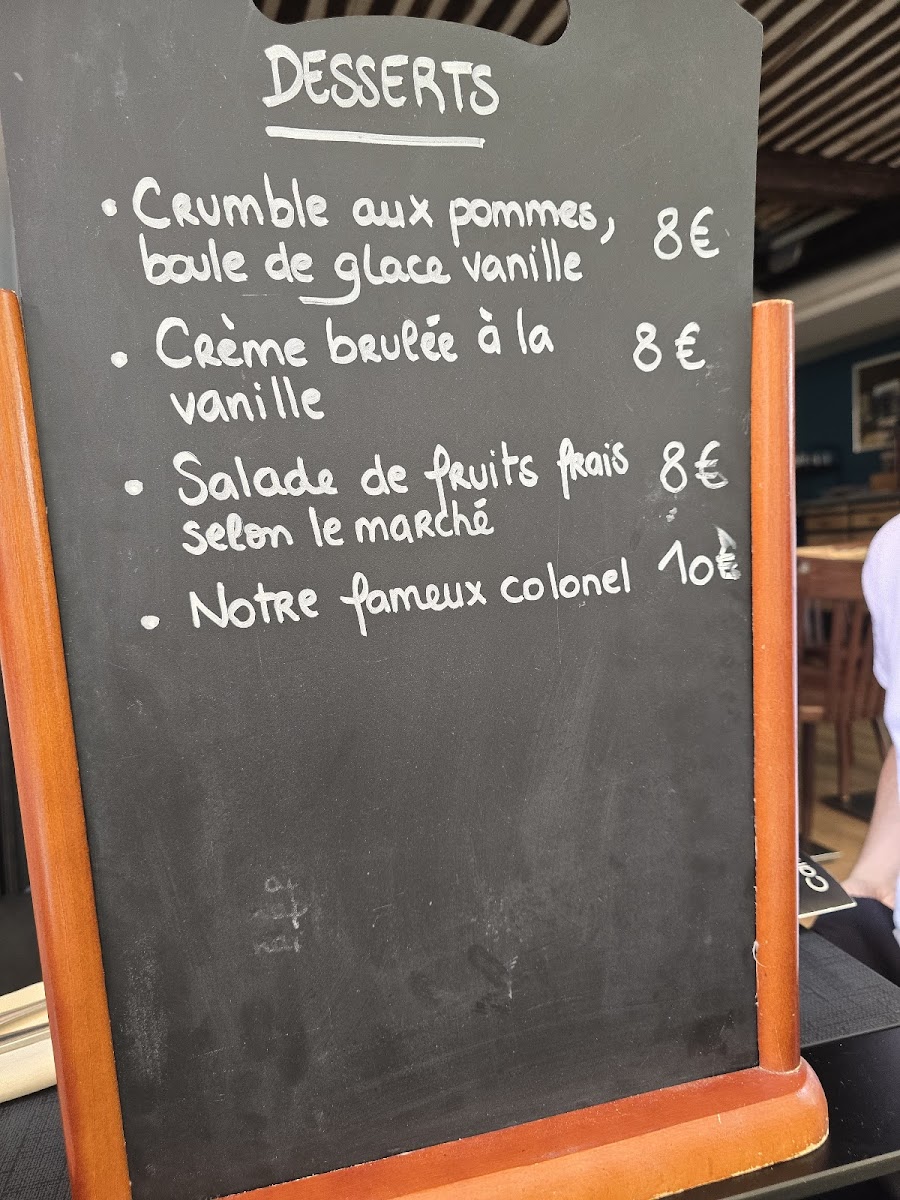 DESSERTS
• Crumble aux pommes, 8€
boule de glace vanille
• Crème brulée à la 8€
vanille
• Salade de fruits frais 8€
selon le marché
• Notre fameux colonel 10€